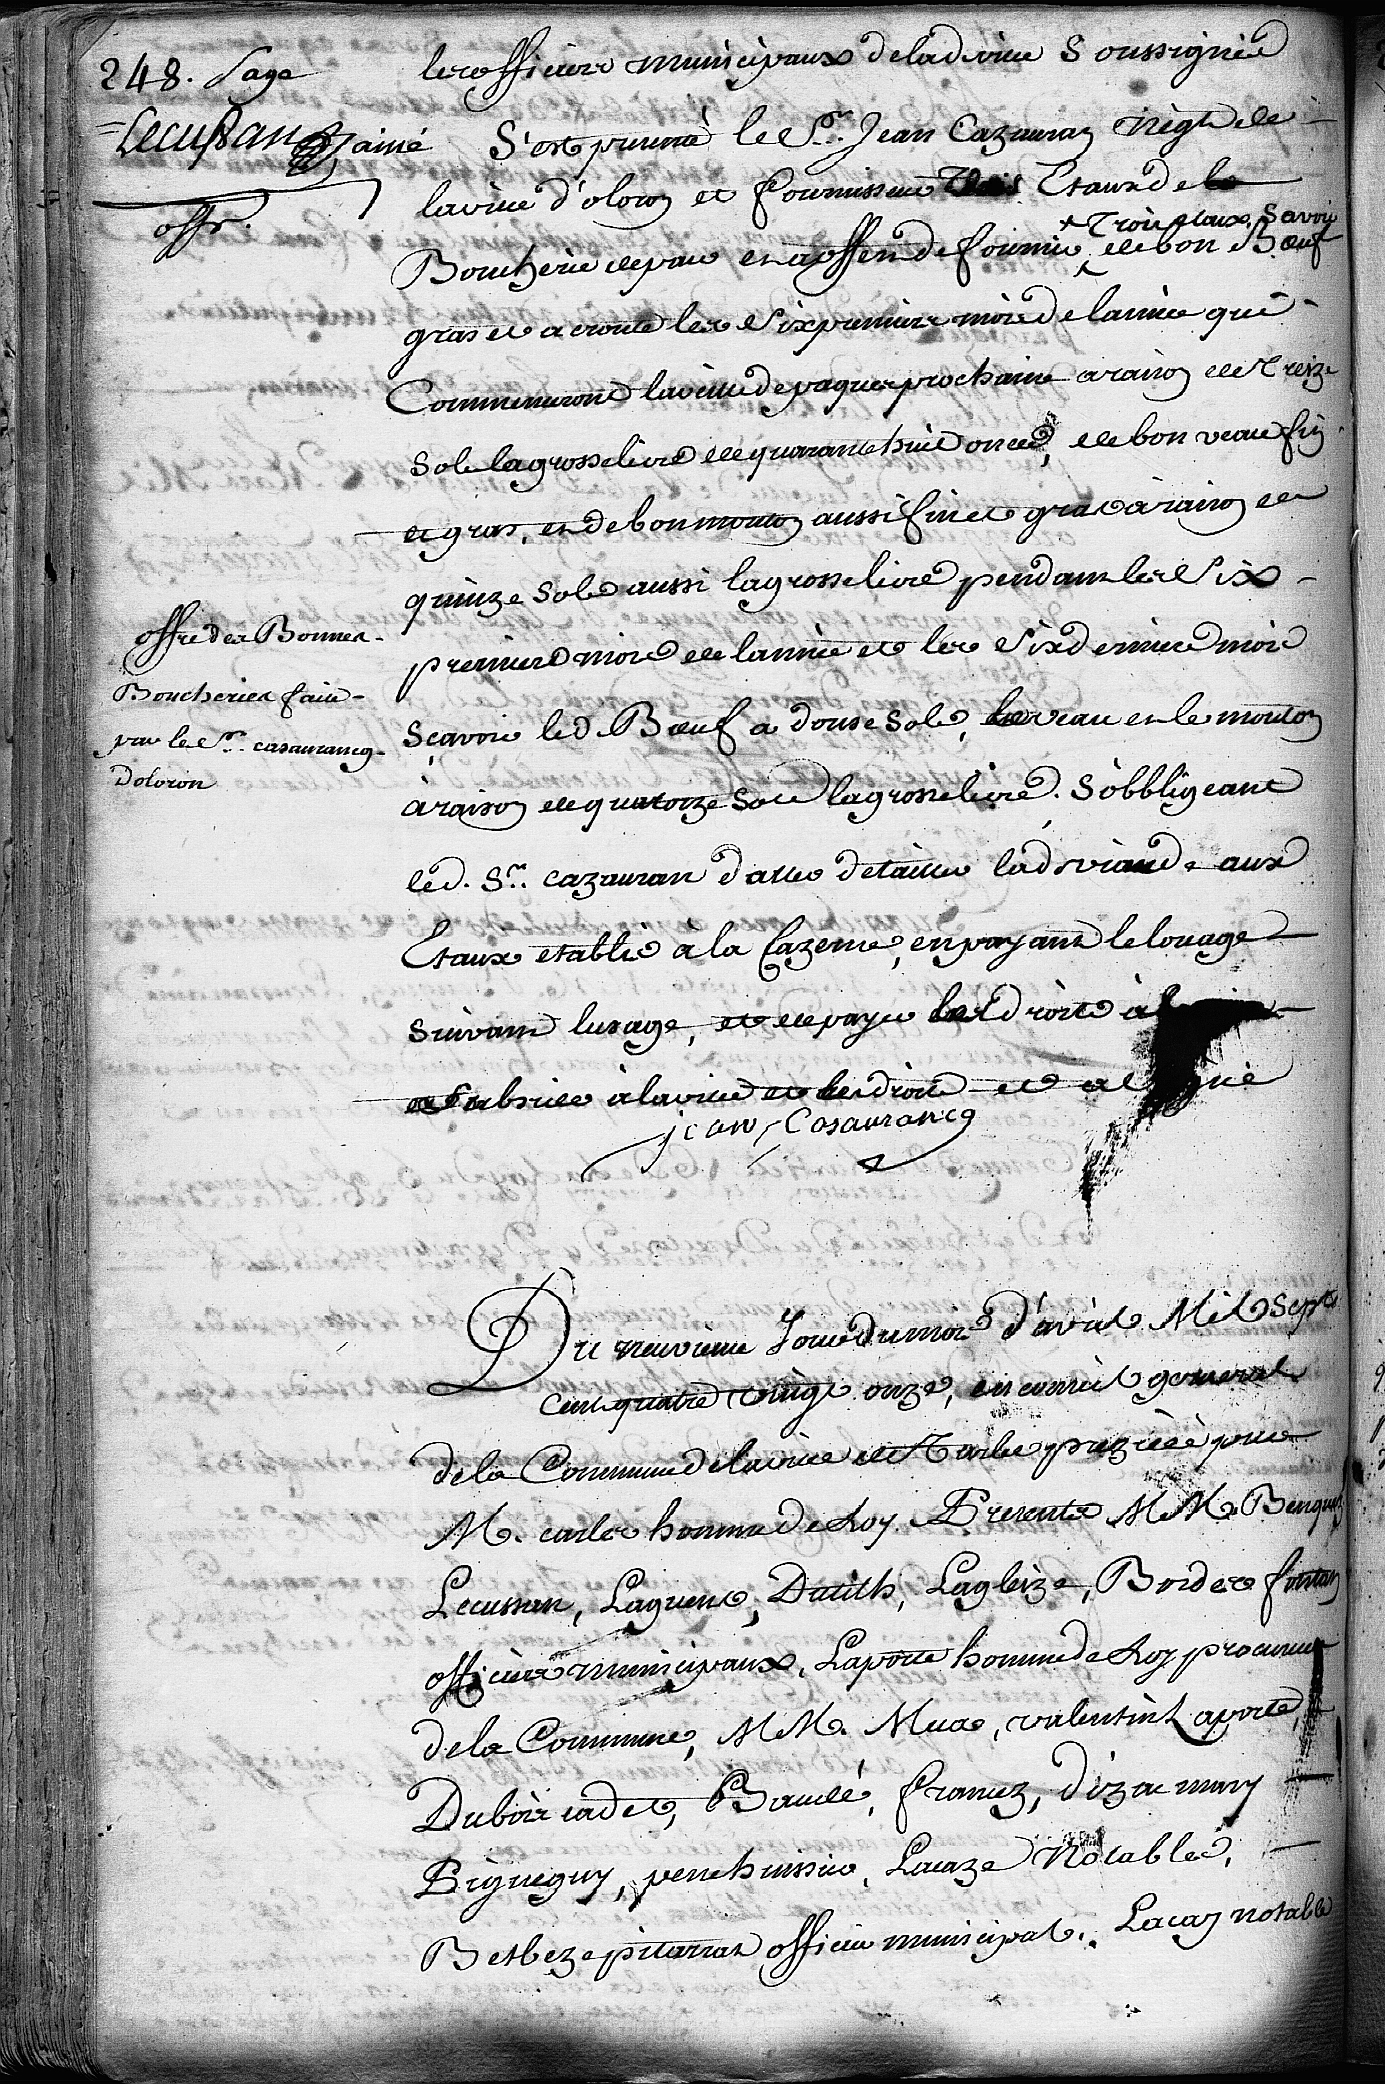 248. Page
Lecussan aisné
offr.
les officiers municipaux de lad. ville Soussignés
S'est presenté le Sr. Jean Cazauran Négt de
la ville d'oloron et fournisseur Etaux de la
* Trois etaux, Savoir
Boucherie de pau et a offert de fournir de bon Bœuf
gras et a croute les Six premiers mois de l'année qui
Commenceront la veille de paques prochaine a raison de Treize
Sols la grosse livre de quarante huit onces, de bon veau fin
et gras, et de bon mouton aussi fin et gras a raison de
quinze Sols aussi la grosse livre pendant les Six
premiers mois de l'année et les Six derniers mois
Sçavoir led. Bœuf a douse Sols, le veau et le mouton
à raison de quatorze Sols la grosse livre. S'obbligeant
led. Sr. cazauran d'aller detailler lad. viande aux
Etaux etablis à la Cazerne, en payant le louage
Suivant lusage, et de payer les droits
à la ville et les droits et a signé
jean Casaurancq
offre des Bonnes
Boucheries faite
par le Sr. casaurancq
d'oloron
Du neuvieme Jour du mois d'avril Mil Sept
Cent quatre vingt onze, en conseil general
de la Commune de la ville de Tarbe prezidé par
M. carles homme de Loy. Presents M M. Benques
Lecussan, Laguens, Dutilh, Lagleize, Borderes fontan
officiers municipaux, Laporte homme de Loy procureur
de la Commune, M M. Mua, valentin Laporte,
Dubois cadet, Baudé, francez, dizac mary
Pigneguy, pene huissier, Lacaze Notables,
Betbeze pitarras officier municipal. Lacay notable